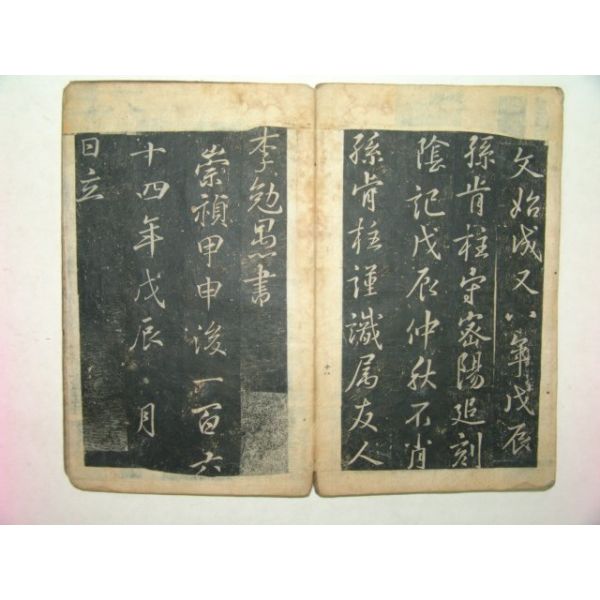 文始成又八年戊辰
孫肯柱守密陽追刻
陰記戊辰仲秋不肖
孫肯柱謹識属友人
李勉愚書
崇禎甲申後一百六
十四年戊辰 月
日立
十八